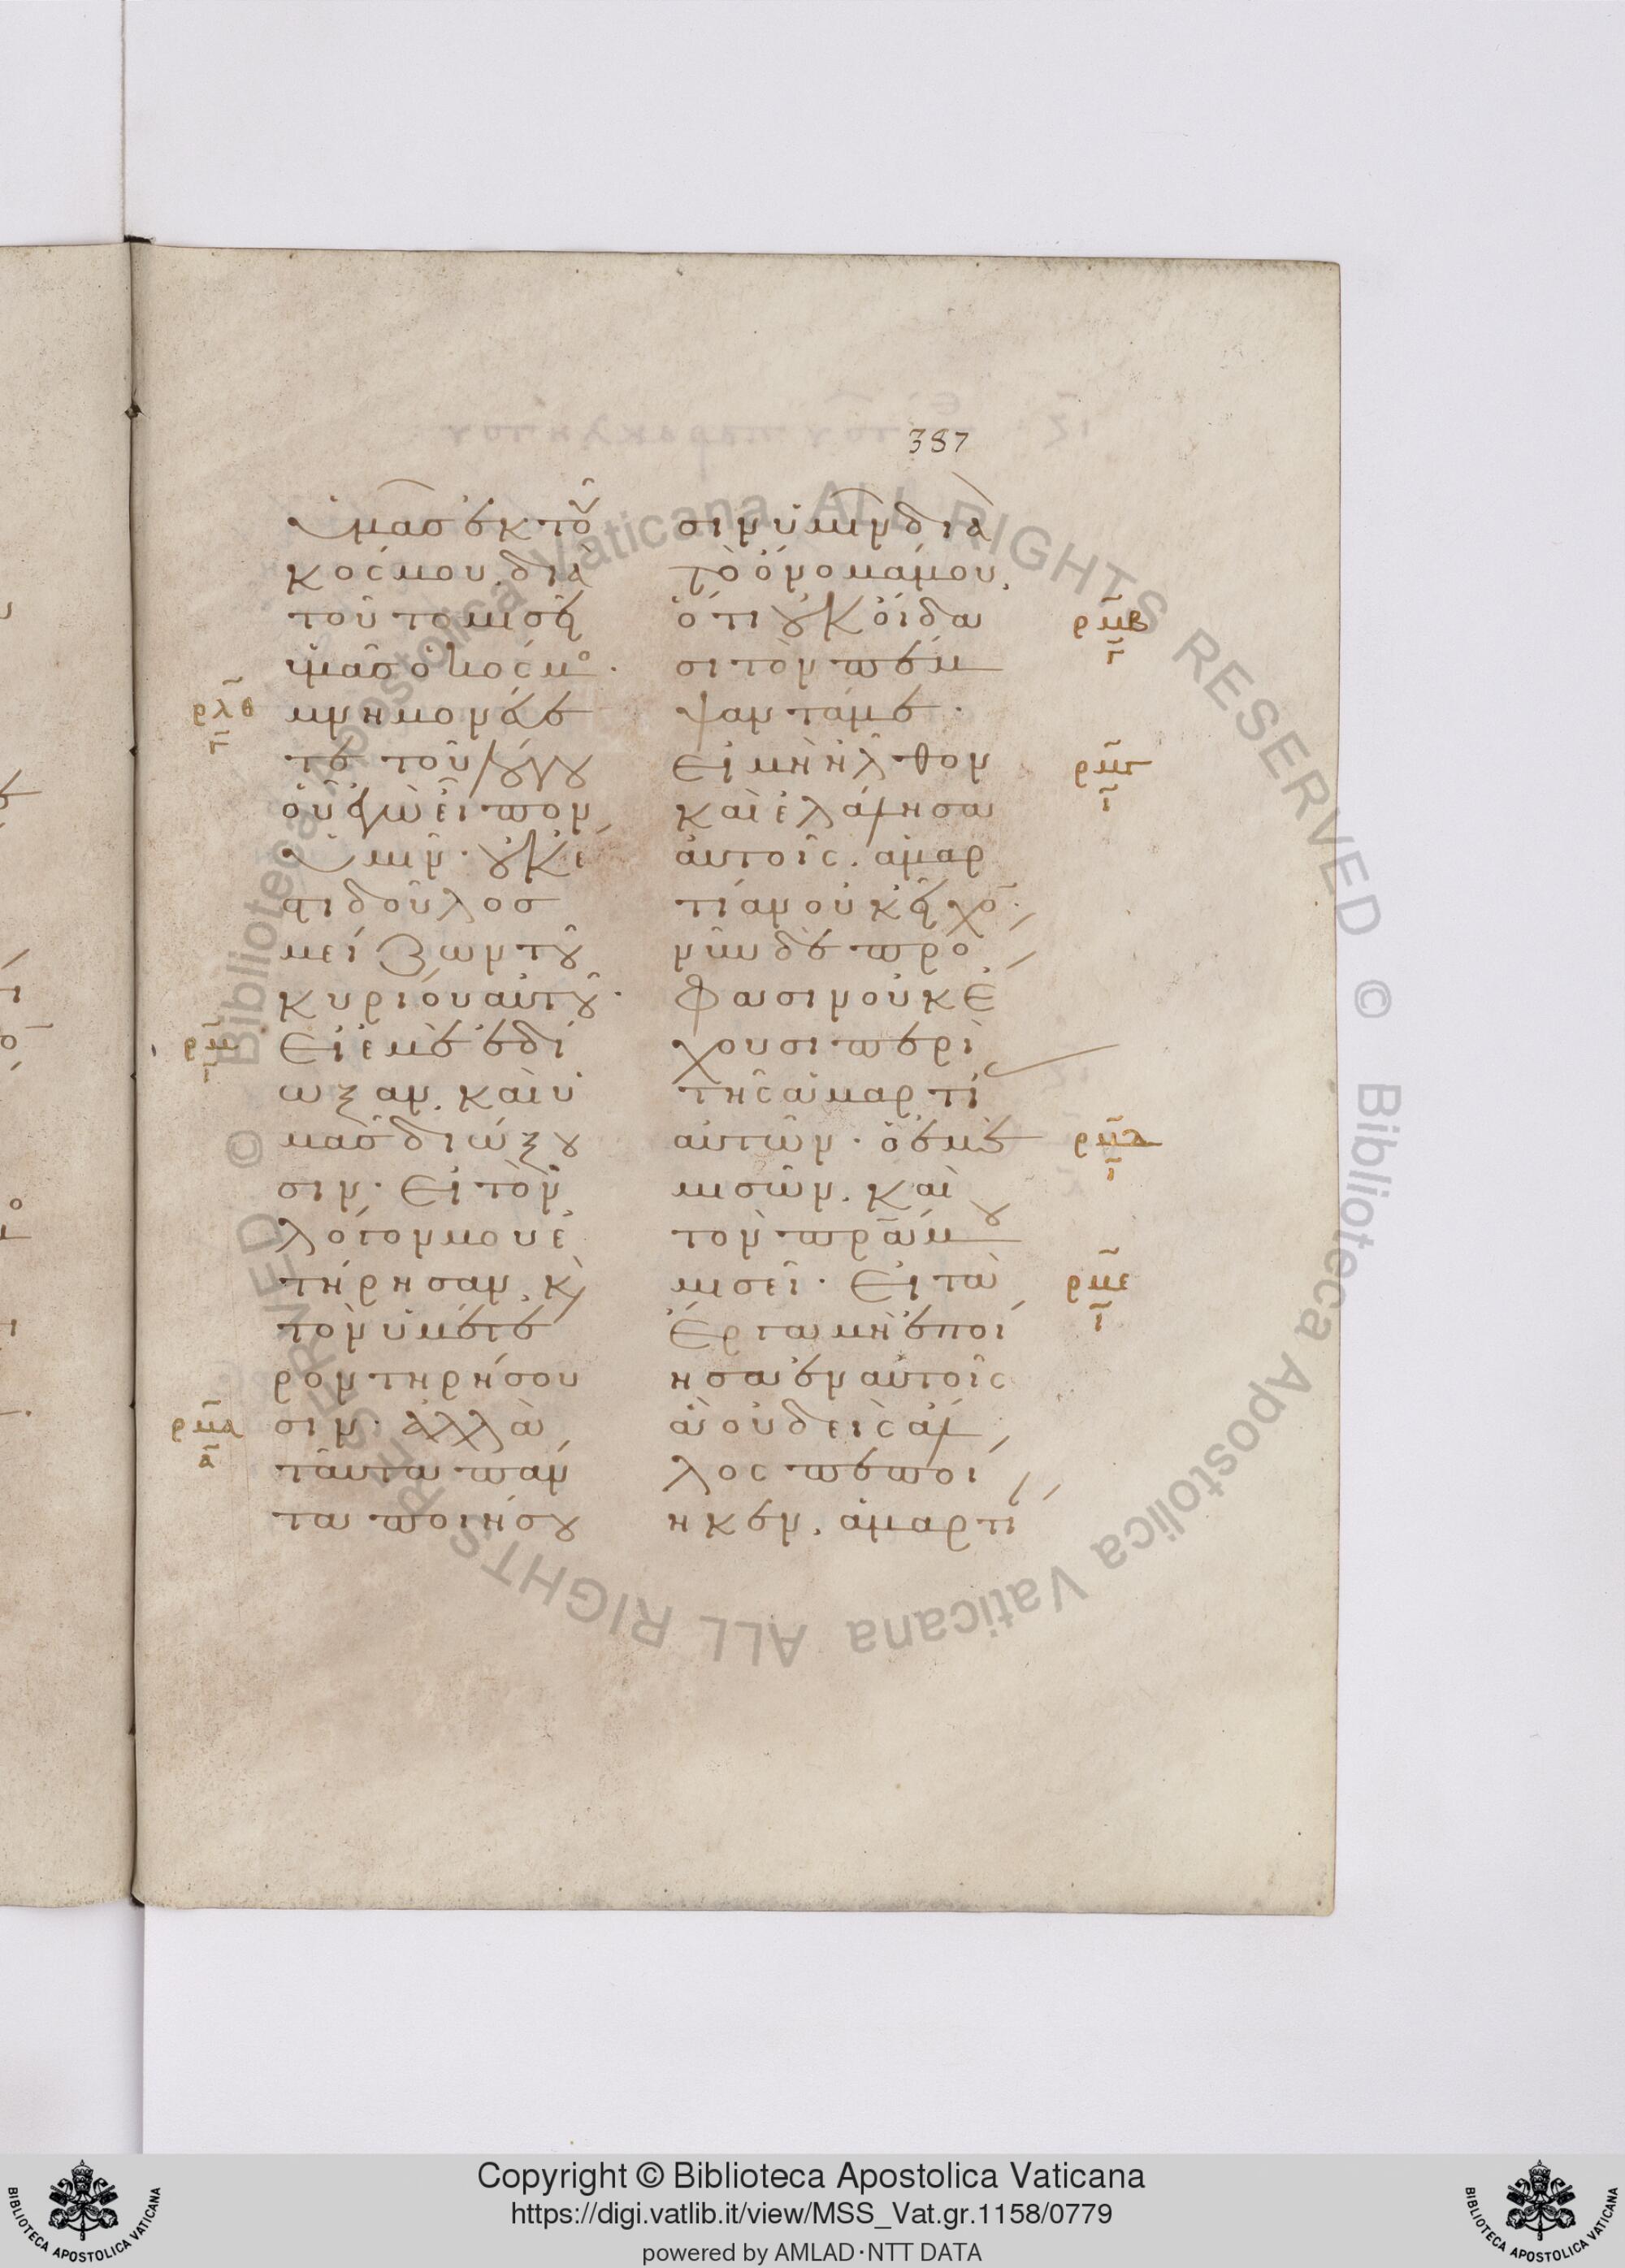 387
ὑμᾶσ ἐκ τοῦ
κόσμου. διὰ
τοῦτο μισεῖ
ὑμᾶσ ὁ κόσμο.
ρλθ
ι
μνημονεύε
τε τοῦ λόγου
οὗ ἐγὼ εἶπον
ὑμῖν. οὐκ ἔ
στι δοῦλοσ
μείζων τοῦ
κυρίου αὐτοῦ.
ρμ
ι
Εἰ ἐμὲ ἐδί
ωξαν. καὶ ὑ
μᾶσ διώξου
σιν. Εἰ τὸν
λόγον μου ἐ
τήρησαν. κὶ
τὸν ὑμέτε
ρον τηρήσου
ρμα
α
σιν. ἀλλὰ
ταῦτα πάν
τα ποιήσου
σιν ὑμῖν διὰ
τὸ ὄνομά μου,
ὅτι οὐκ οἴδα
ρμβ
γ
σι τὸν πέμ
ψαντά με.
Εἰ μὴ ἦλθον
ρμγ
ι
καὶ ἐλάλησα
αὐτοῖς. ἁμαρ
τίαν οὐκ εἶχο.
νῦν δὲ πρό
φασιν οὐκ ἔ
χουσι περὶ
τῆς ἁμαρτί
αὐτῶν. ὁ ἐμὲ
ρμδ
ι
μισῶν. καὶ
τὸν πρᾱ́ μου
μισεῖ. Εἰ τὰ
ρμε
ι
ἔργα μὴ ἐποί
ησα ἐν αὐτοῖς
ἃ οὐδεὶς ἄλ
λος πεποί
ηκεν. ἁμαρτί
Copyright © Biblioteca Apostolica Vaticana
https://digi.vatlib.it/view/MSS_Vat.gr.1158/0779
powered by AMLAD·NTT DATA
BIBLIOTECA APOSTOLICA VATICANA
BIBLIOTECA APOSTOLICA VATICANA
© Biblioteca Apostolica Vaticana ALL RIGHTS RESERVED © Biblioteca Apostolica Vaticana ALL RIGHTS RESERVED